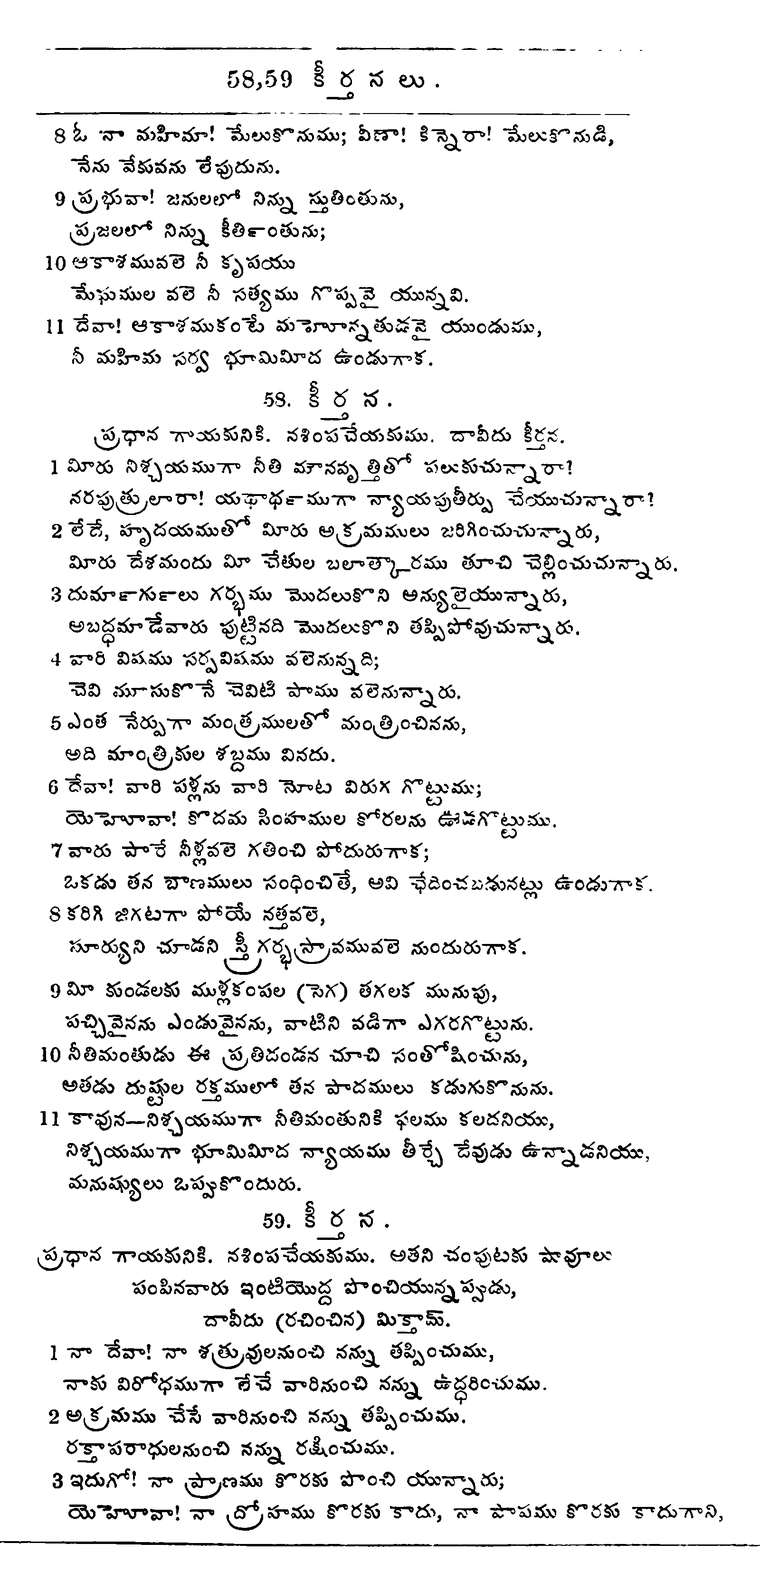 58,59 కీర్తనలు.
8 ఓ నా మహిమా! మేలుకొనుము; వీణా! కిన్నెరా! మేలుకొనుడి,
నేను వేకువను లేపుదును.
9 ప్రభువా! జనులలో నిన్ను స్తుతింతును,
ప్రజలలో నిన్ను కీతిఁంతును;
10 ఆకాశమువలె నీ కృపయు
మేఘముల వలె నీ సత్యము గొప్పవై యున్నవి.
11 దేవా! ఆకాశముకంటే మహోన్నతుడవై యుండుము,
నీ మహిమ సర్వ భూమిమీద ఉండుగాక.
58. కీర్తన.
ప్రధాన గాయకునికి. నశింపచేయకుము. దావీదు కీర్తన.
1 మీరు నిశ్చయముగా నీతి మౌనవృత్తితో పలుకుచున్నారా?
నరపుత్రులారా! యథాథ౯ముగా న్యాయపుతీర్పు చేయుచున్నారా?
2 లేదే, హృదయముతో మీరు అక్రమములు జరిగించుచున్నారు,
మీరు దేశమందు మీ చేతుల బలాత్కారము తూచి చెల్లించుచున్నారు.
3 దుమా౯గు౯లు గర్భము మొదలుకొని అన్యులైయున్నారు,
అబద్ధమాడేవారు పుట్టినది మొదలుకొని తప్పిపోవుచున్నారు.
4 వారి విషము సర్పవిషము వలెనున్నది;
చెవి మూసుకొనే చెవిటి పాము వలెనున్నారు.
5 ఎంత నేర్పుగా మంత్రములతో మంత్రించినను,
అది మాంత్రికుల శబ్దము వినదు.
6 దేవా! వారి పళ్లను వారి నోట విరుగ గొట్టుము;
యెహోవా! కొదమ సింహముల కోరలను ఊడగొట్టుము.
7 వారు పారే నీళ్లవలె గతించి పోదురుగాక;
ఒకడు తన బాణములు సంధించితే, అవి ఛేదించబడునట్లు ఉండుగాక.
8 కరిగి జిగటగా పోయే నత్తవలె,
సూర్యుని చూడని స్త్రీ గర్భస్రావమువలె నుందురుగాక.
9 మీ కుండలకు ముళ్లకంపల (సెగ) తగలక మునుపు,
పచ్చివైనను ఎండువైనను, వాటిని వడిగా ఎగరగొట్టును.
10 నీతిమంతుడు ఈ ప్రతిదండన చూచి సంతోషించును,
అతడు దుష్టుల రక్తములో తన పాదములు కడుగుకొనును.
11 కావున—నిశ్చయముగా నీతిమంతునికి ఫలము కలదనియు,
నిశ్చయముగా భూమిమీద న్యాయము తీర్చే దేవుడు ఉన్నాడనియు,
మనుష్యులు ఒప్పుకొందురు.
59. కీర్తన.
ప్రధాన గాయకునికి. నశింపచేయకుము. అతని చంపుటకు షావూలు
పంపినవారు ఇంటియొద్ద పొంచియున్నప్పుడు,
దావీదు (రచించిన) మిక్తామ్.
1 నా దేవా! నా శత్రువులనుంచి నన్ను తప్పించుము,
నాకు విరోధముగా లేచే వారినుంచి నన్ను ఉద్ధరించుము.
2 అక్రమము చేసే వారినుంచి నన్ను తప్పించుము.
రక్తాపరాధులనుంచి నన్ను రక్షించుము.
3 ఇదుగో! నా ప్రాణము కొరకు పొంచి యున్నారు;
యెహోవా! నా ద్రోహము కొరకు కాదు, నా పాపము కొరకు కాదుగాని,